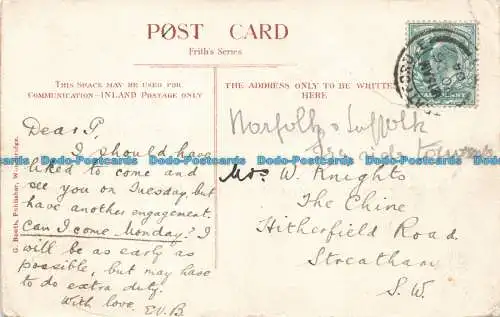 POST CARD
Frith's Series
THIS SPACE MAY BE USED FOR
COMMUNICATION-INLAND POSTAGE ONLY
THE ADDRESS ONLY TO BE WRITTEN
HERE
Dear P,
I should have
liked to come and
see you on Tuesday, but
have another engagement.
Can I come Monday? I
will be as early as
possible, but may have
to do extra duty.
With love. E.V.B
Norfolk & Suffolk
Mrs. W. Knights
The Chine
Hitherfield Road
Streatham
S.W.
G. Booth, Publisher, Woodbridge.
Davids-Topdeals Davids-Topdeals Davids-Topdeals Davids-Topdeals Davids-Topdeals